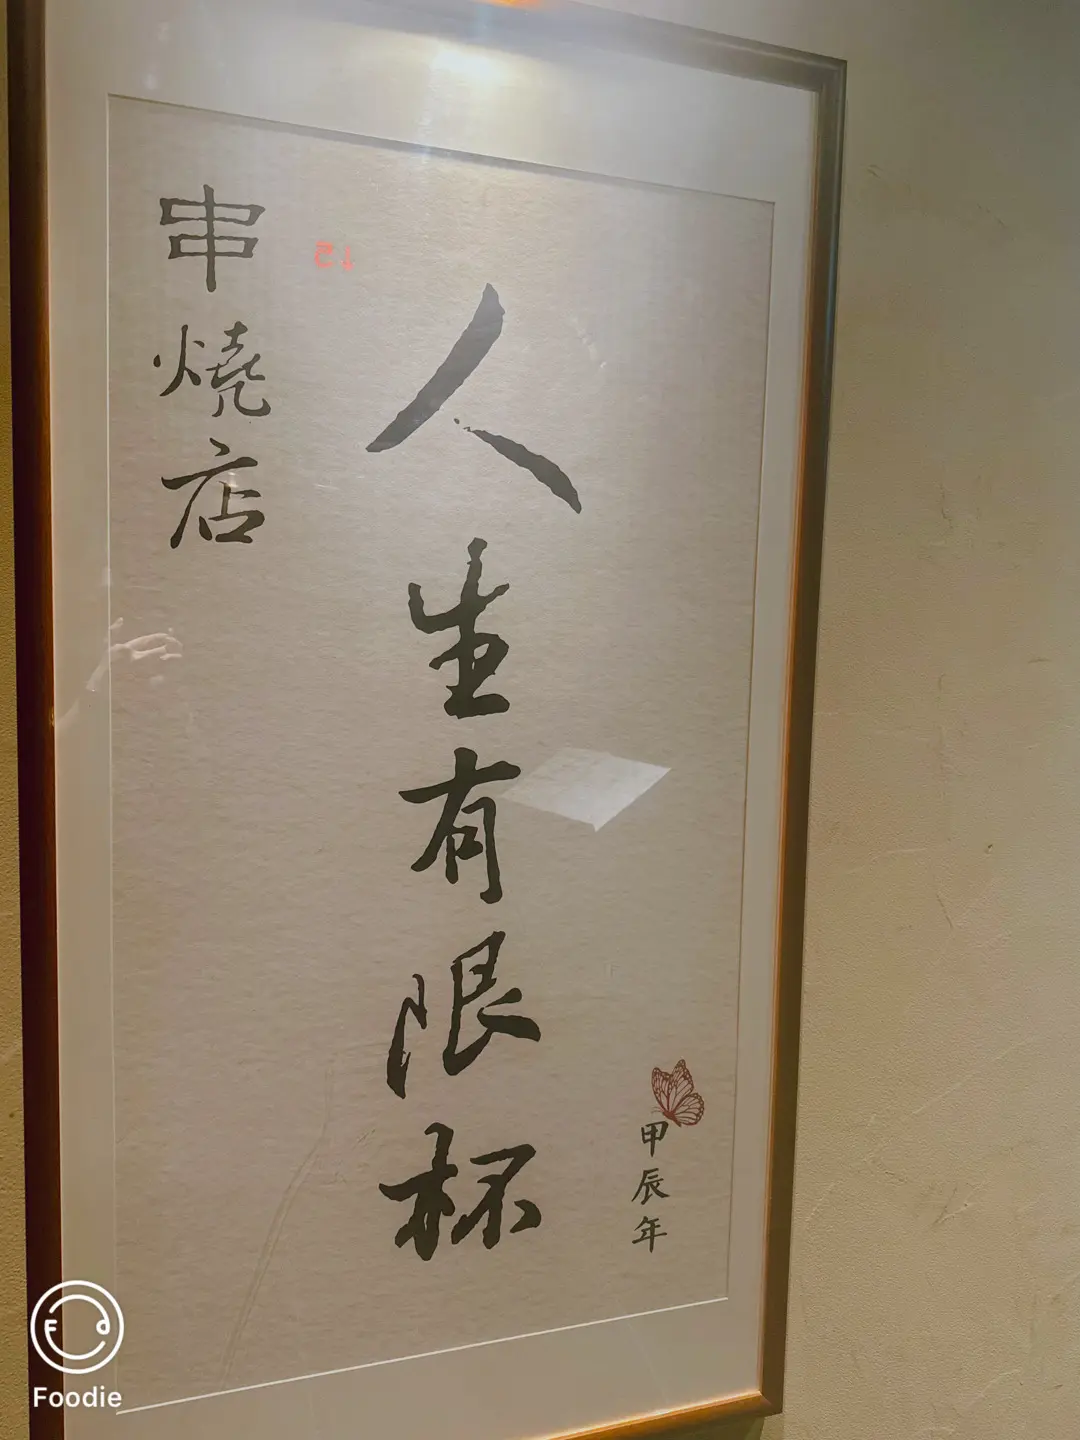 串燒店
人生有限杯
甲辰年
Foodie